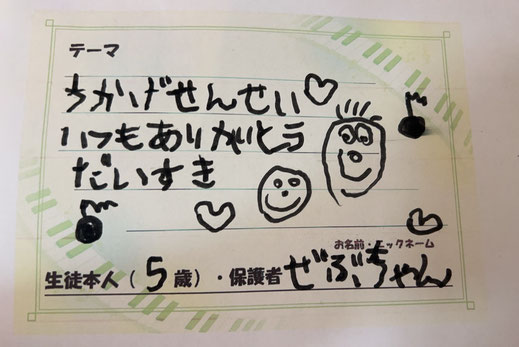 テーマ
ちかげせんせい
いつもありがとう
だいすき
お名前・ニックネーム
生徒本人(5歳)・保護者 ぜぶちゃん